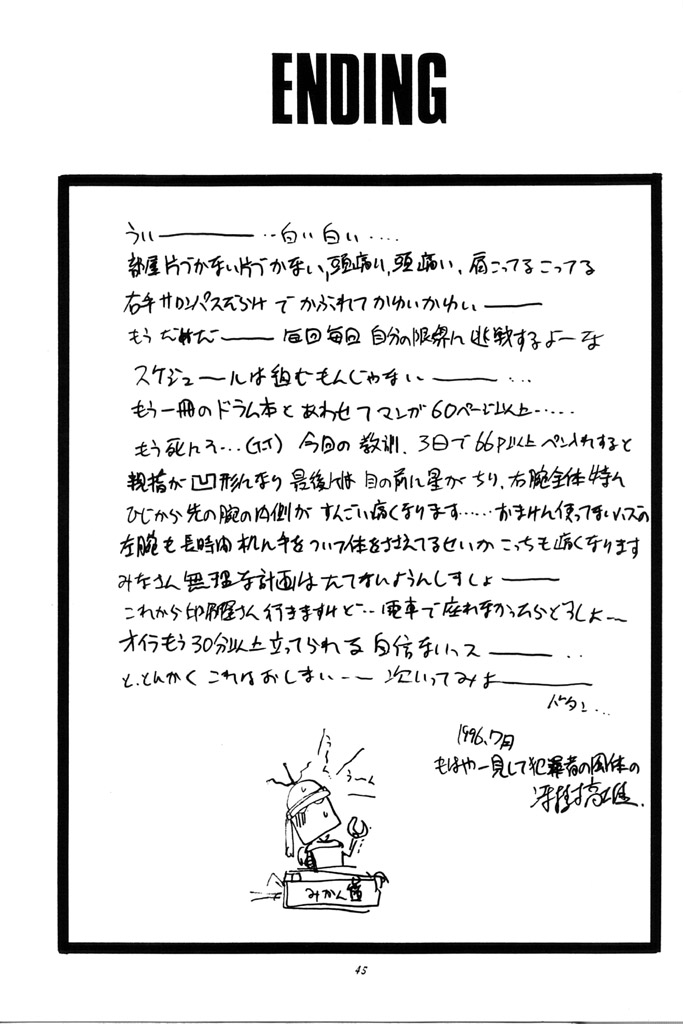 ENDING
うい――――‥白い白い‥‥
部屋片づかない片づかない,頭痛い,頭痛い,肩こってるこってる
右手サロンパスだらけでかぶれてかゆいかゆい――
もうだめだ―― 毎回毎回自分の限界に挑戦するよーな
スケジュールは組むもんじゃない―― …
もう一冊のドラム本とあわせてマンガ60ページ以上……
もう死んで…(T.T) 今回の教訓、3日で66P以上ペン入れすると
親指が凹形になり最後には目の前に星がちり、右腕全体特に
ひじから先の腕の内側がすんごい痛くなります……おまけに使ってないハズの
左腕も長時間机に手をついて体をささえてるせいかこっちも痛くなります
みなさん無理な計画はたてないようにしましょ――
これから印刷屋さん行きますけど‥電車で座れなかったらどうしよ～
オイラもう30分以上立ってられる自信ないっス―― ‥
と、とにかくこれはおしまい―― 次いってみよ――――
バタン…
1996.7月
もはや一見して犯罪者の風体の
うーん
うーん
みかん箱
45